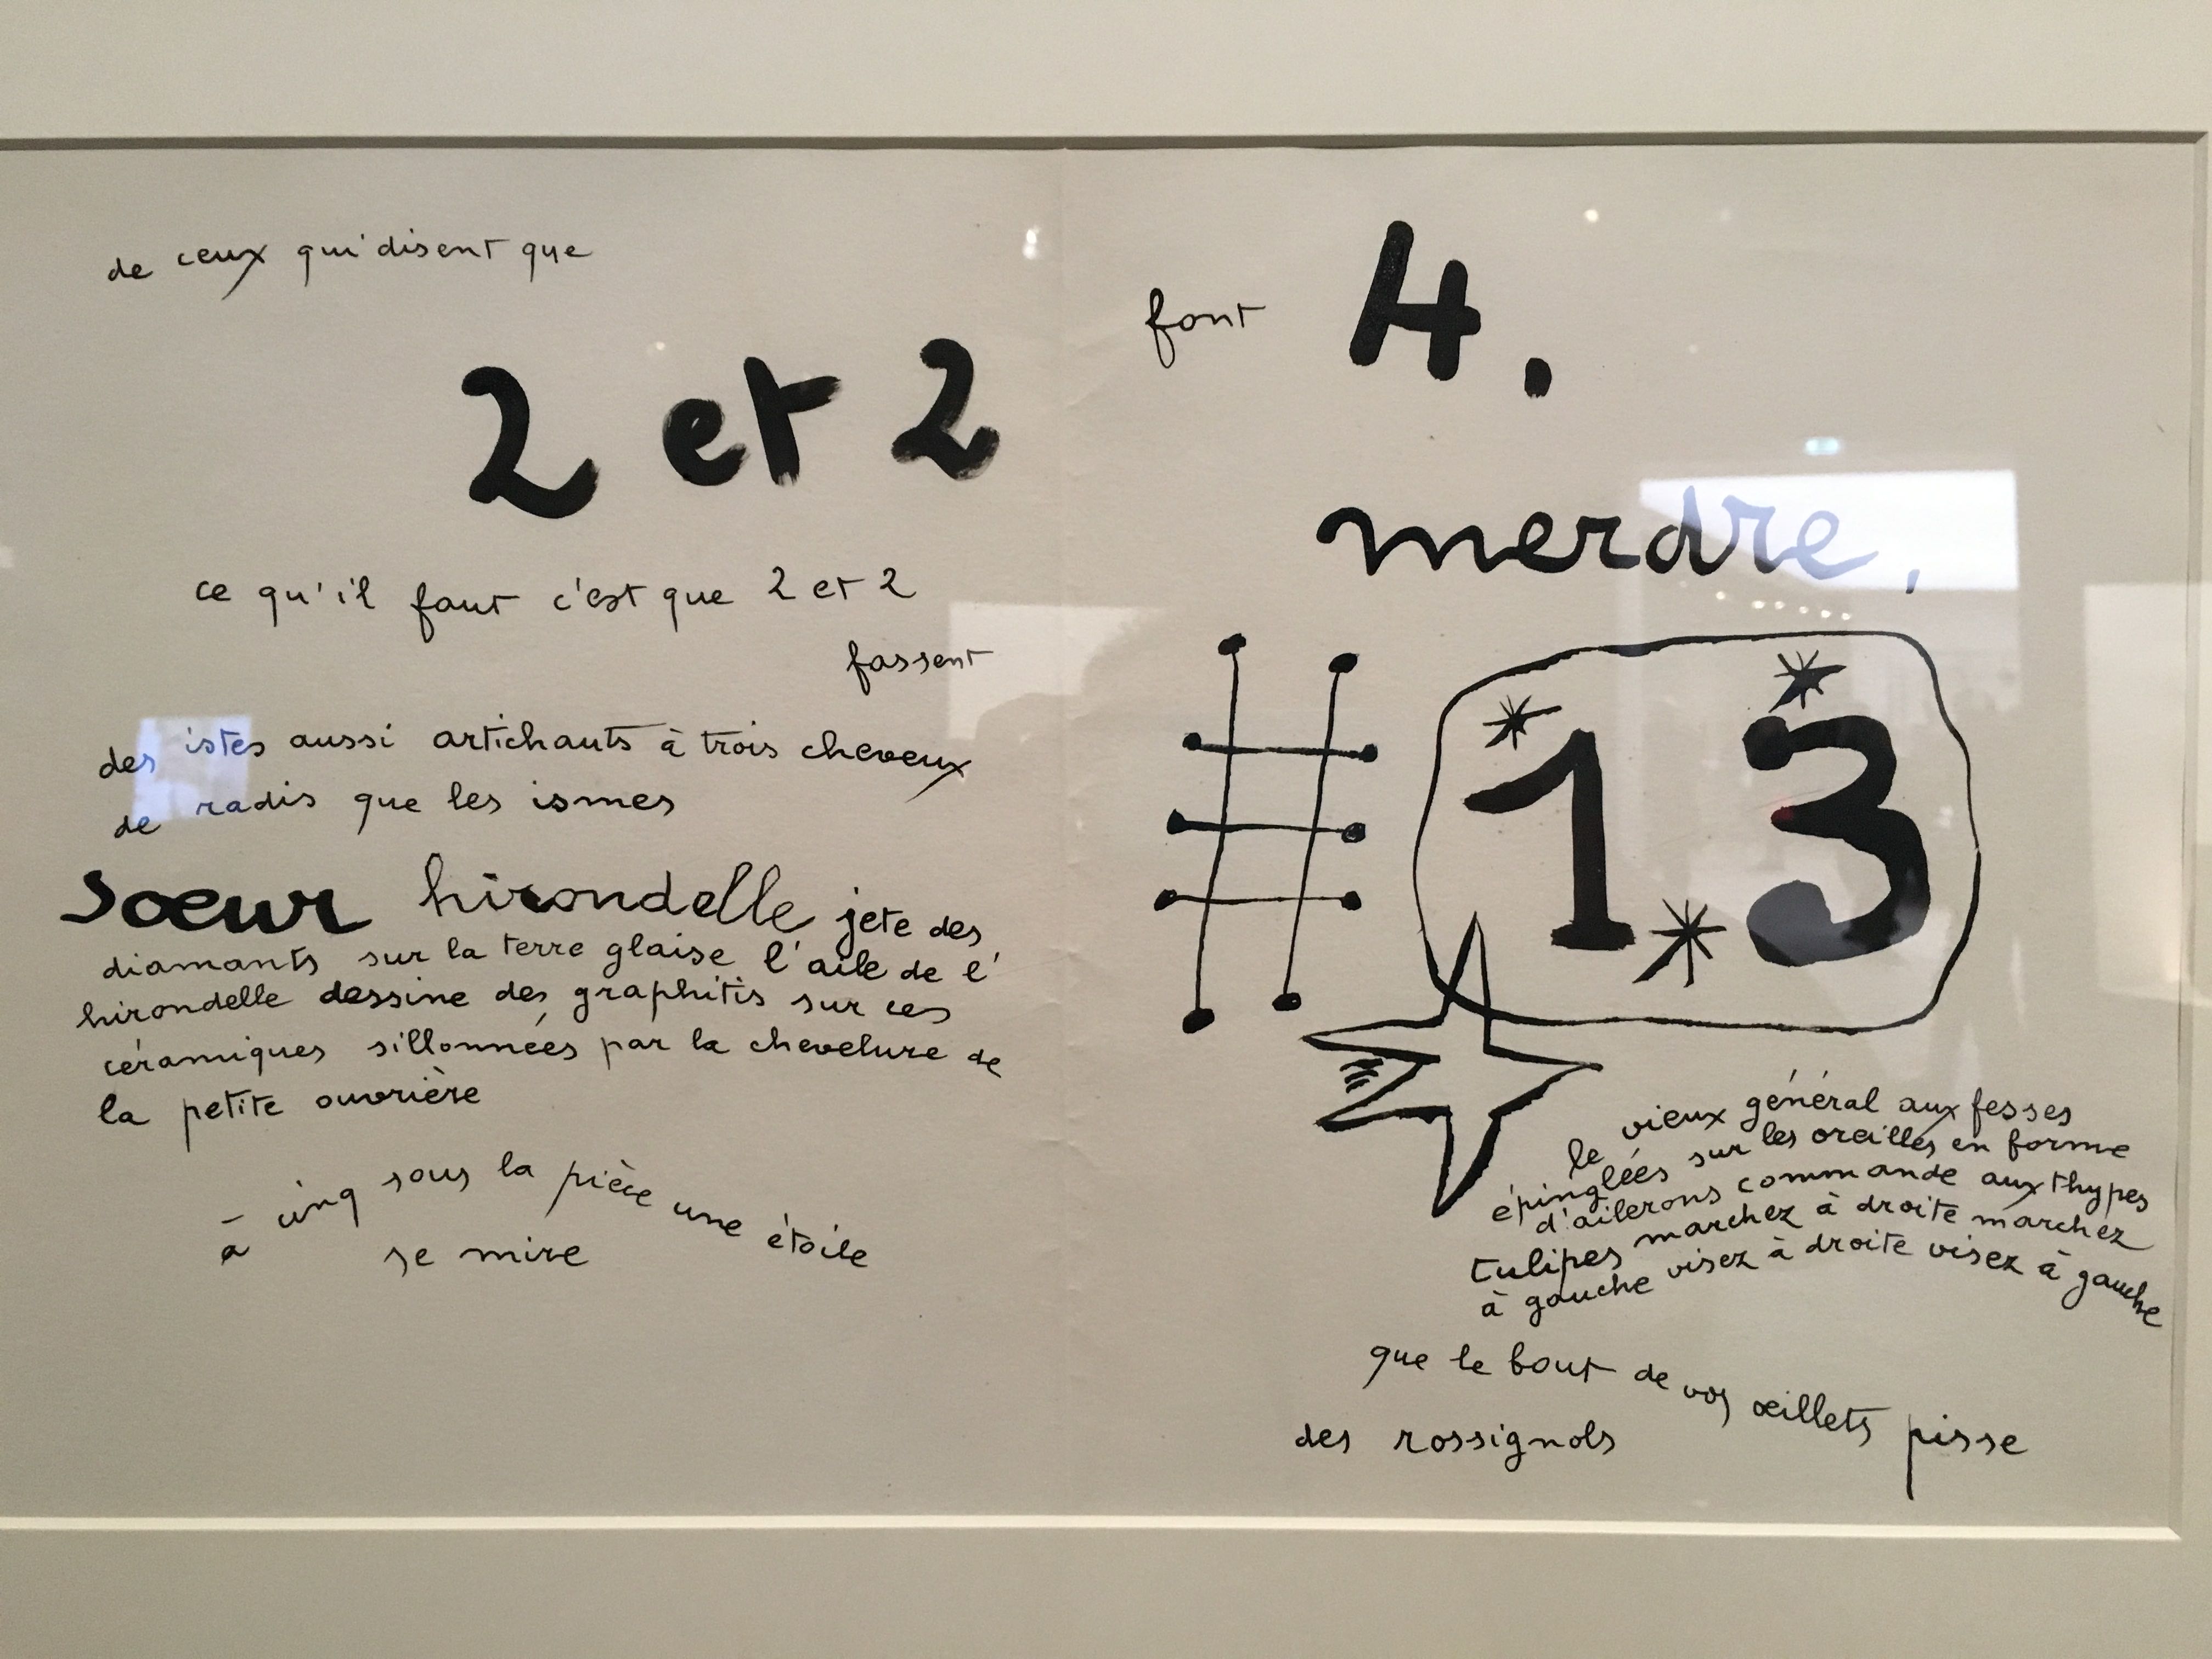 de ceux qui disent que
2 et 2
ce qu'il faut c'est que 2 et 2
fassent
des istes aussi artichauts à trois cheveux
de radis que les ismes
soeur hirondelle jete des
diamants sur la terre glaise l'aile de l'
hirondelle dessine des graphitis sur ces
céramiques sillonnées par la chevelure de
la petite ouvrière
à cinq sous la pièce une étoile
se mire
font 4.
merdre,
13
le vieux général aux fesses
épinglées sur les oreilles en forme
d'ailerons commande aux thypes
tulipes marchez à droite marchez
à gauche visez à droite visez à gauche
que le bout de vos œillets pisse
des rossignols